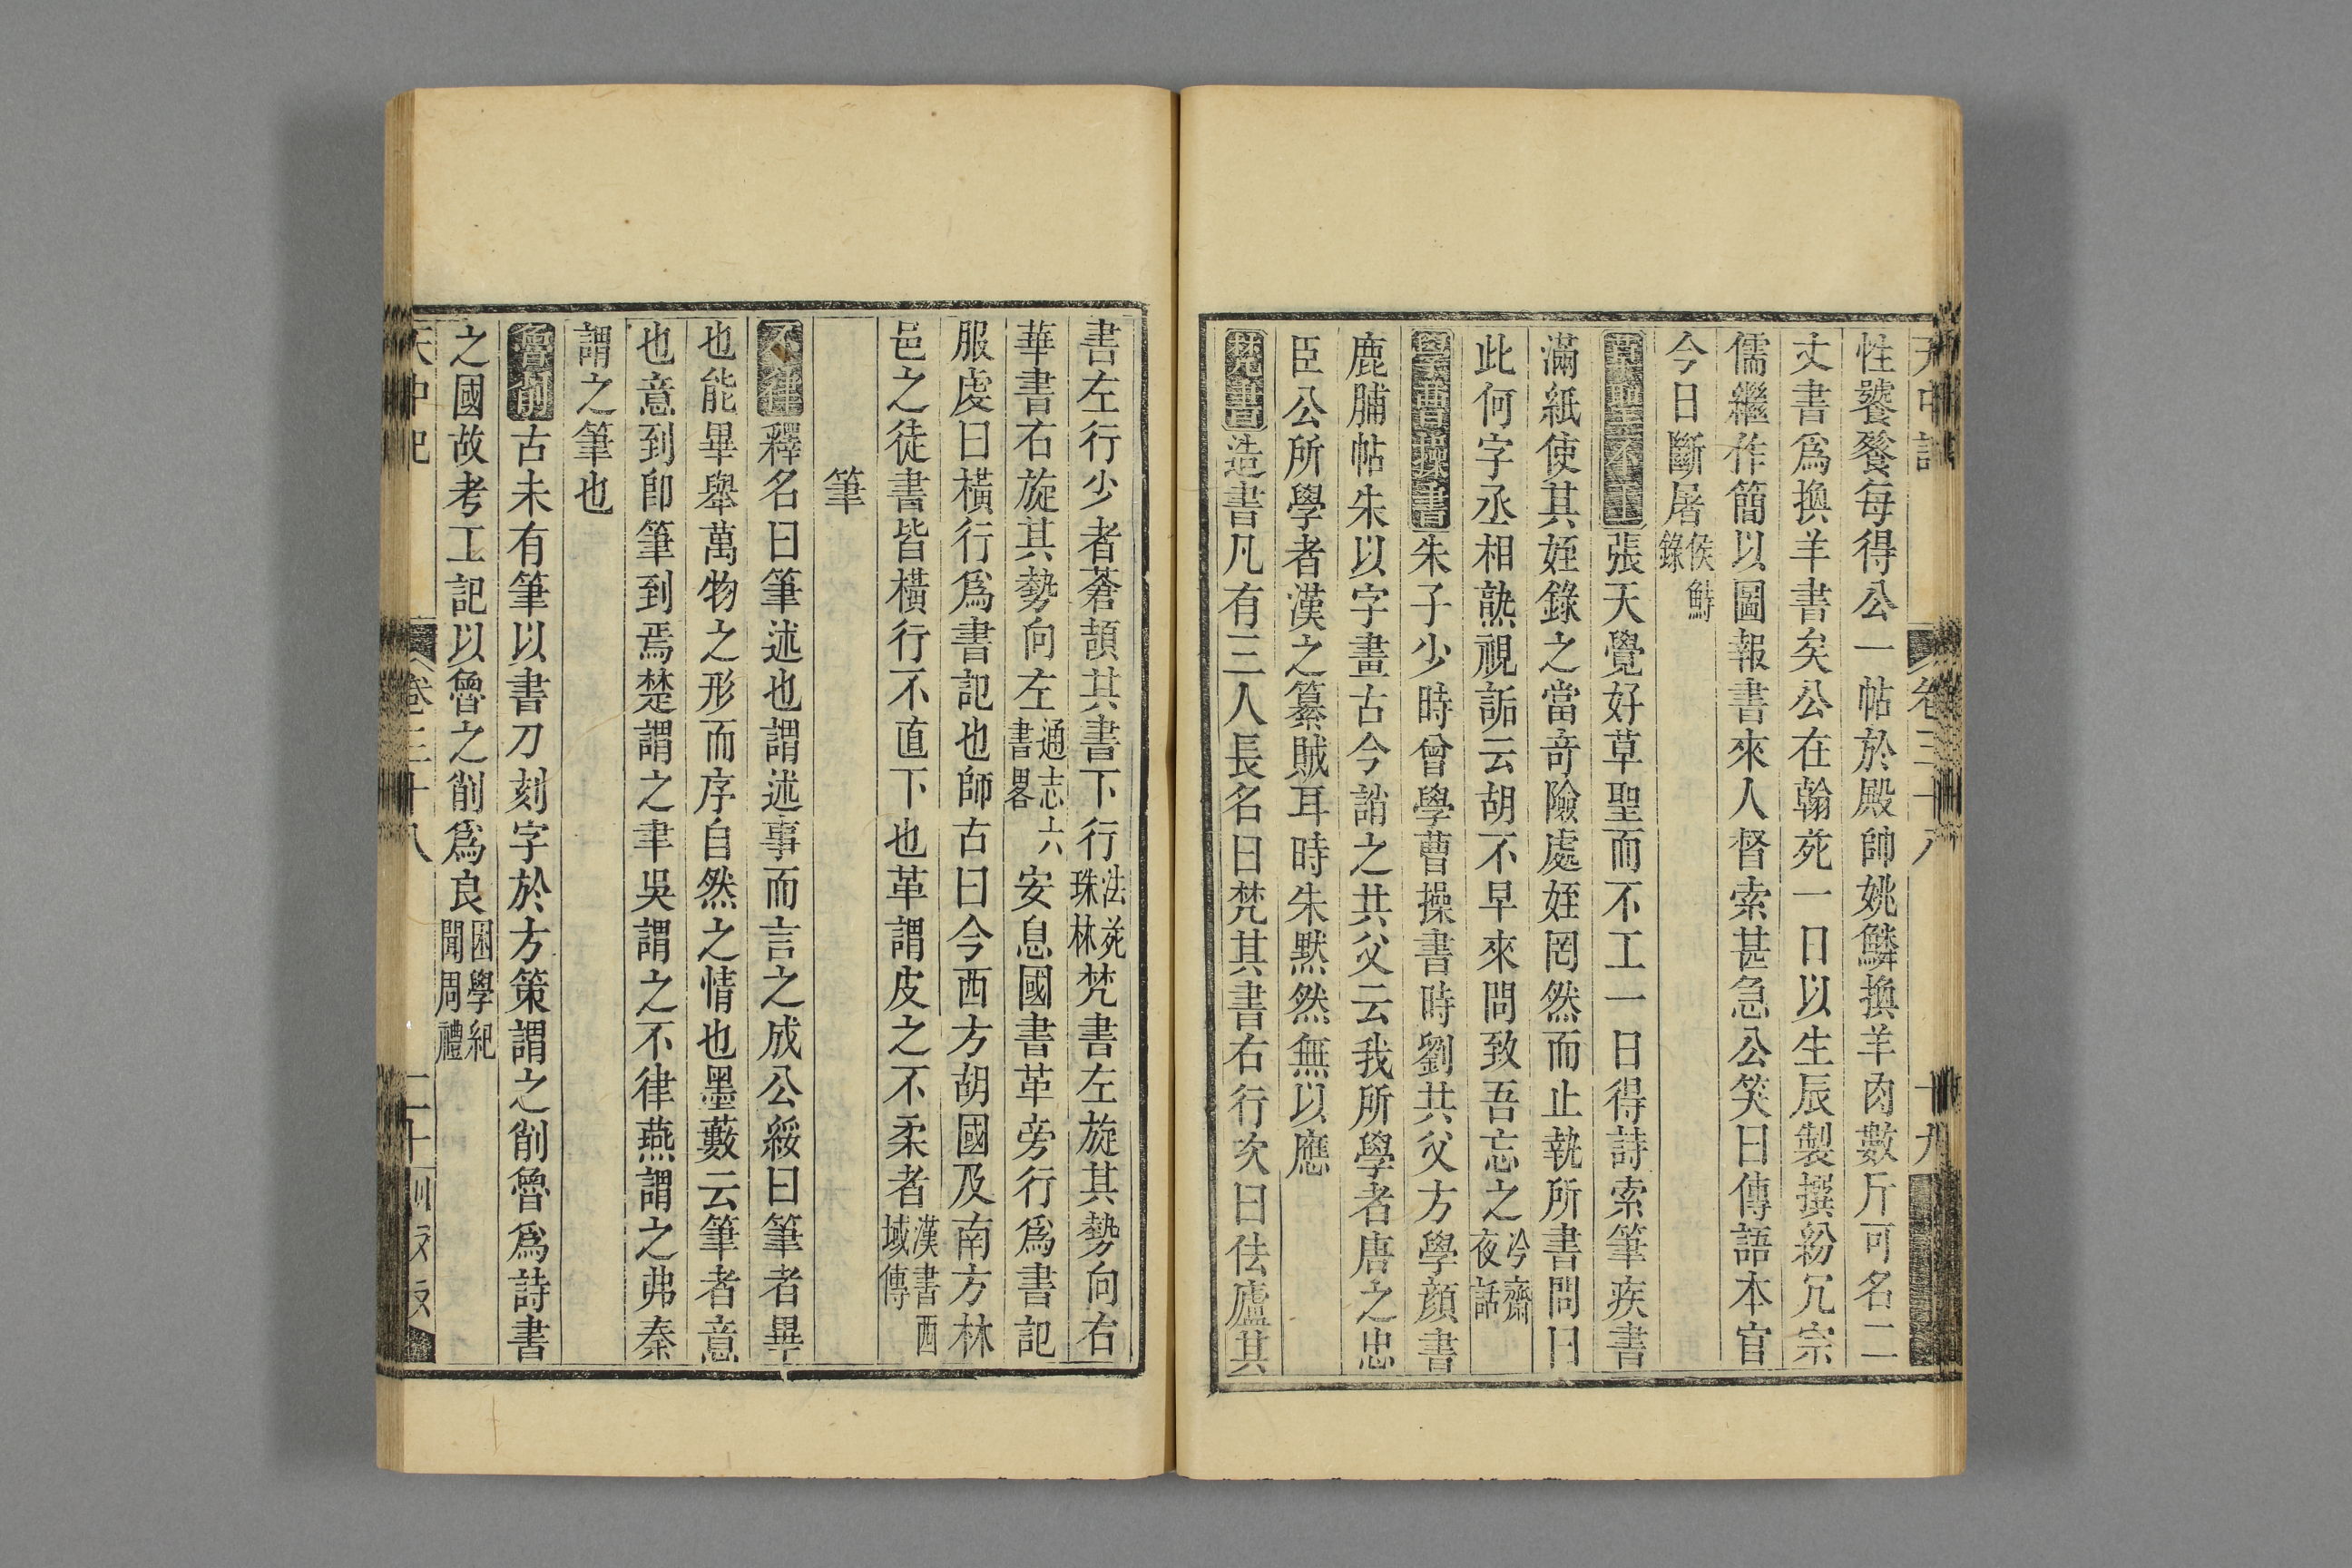 天中記 卷三十八 十九
性饕餮每得公一帖於殿帥姚鱗換羊肉數斤可名二
丈書爲換羊書矣公在翰苑一日以生辰製撰紛冗宗
儒繼作簡以圖報書來人督索甚急公笑曰傳語本官
今日斷屠侯鯖錄
草聖不工張天覺好草聖而不工一日得詩索筆疾書
滿紙使其姪錄之當竒險處姪罔然而止執所書問曰
此何字丞相熟視詬云胡不早來問致吾忘之冷齋夜話
學曹操書朱子少時曾學曹操書時劉共父方學顔書
鹿脯帖朱以字畫古今誚之共父云我所學者唐之忠
臣公所學者漢之簒賊耳時朱默然無以應
梵書造書凡有三人長名曰梵其書右行次曰佉廬其
書左行少者蒼頡其書下行法苑珠林梵書左旋其勢向右
華書右旋其勢向左通志六書畧安息國書革旁行爲書記
服虔曰橫行爲書記也師古曰今西方胡國及南方林
邑之徒書皆橫行不直下也革謂皮之不柔者漢書西域傳
筆
不律釋名曰筆述也謂述事而言之成公綏曰筆者畢
也能畢舉萬物之形而序自然之情也墨藪云筆者意
也意到卽筆到焉楚謂之聿吳謂之不律燕謂之弗秦
謂之筆也
魯削古未有筆以書刀刻字於方策謂之削魯爲詩書
之國故考工記以魯之削爲良困學紀聞周禮
天中記 卷三十八 二十